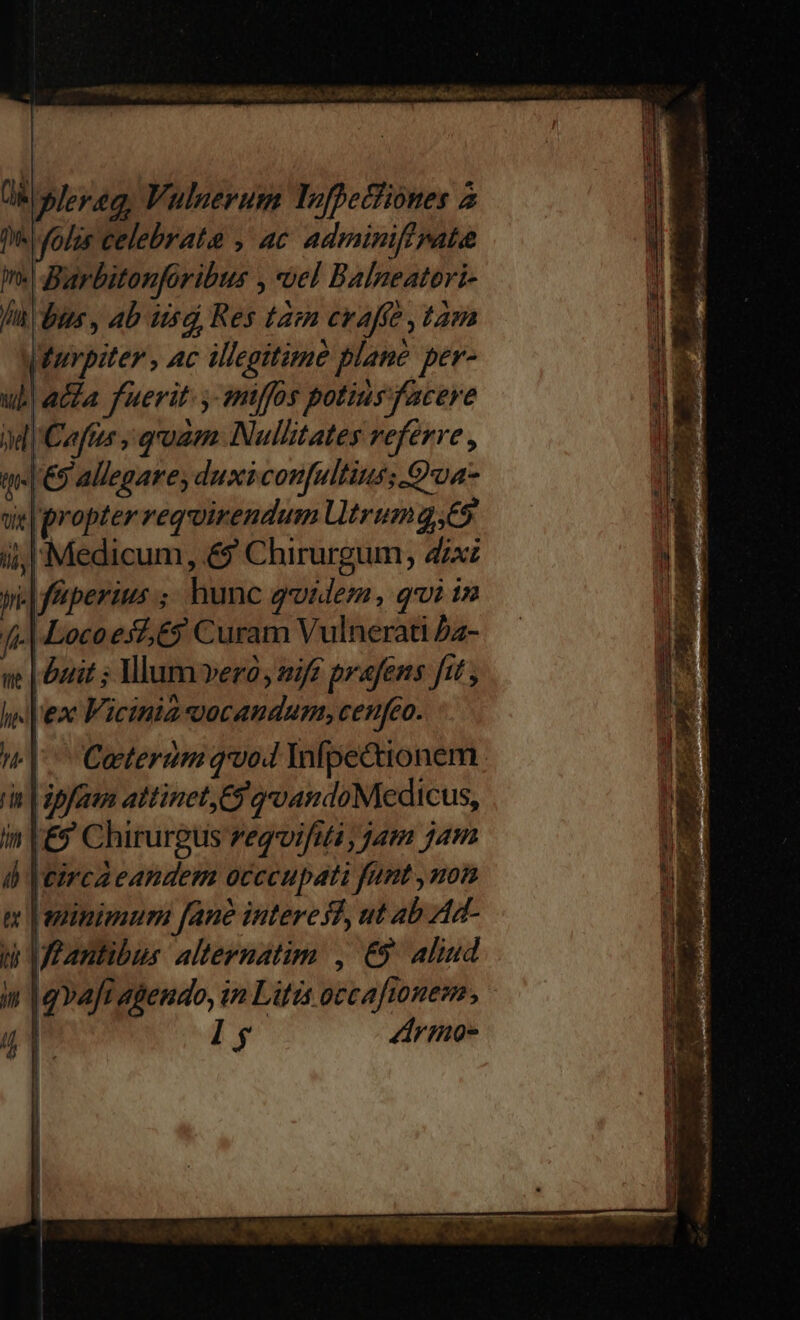 pleraq; Vulnerum Inſpectiones à
ſolis celebratæ , ac adminiſtratæ
Barbitonſoribus , vel Balneatori-
bus , ab iisq; Res tàm craſſè , tàm
turpiter , ac illegitimè planè per-
acta fuerit ; miſſos potiùs facere
Caſus , qvàm Nullitates referre ,
& allegare, duxi conſultius; Qva-
propter reqvirendum Utrumq;, &
Medicum, & Chirurgum, dixi
ſuperius ; hunc qvidem , qvi in
Loco eſt, & Curam Vulnerati ha-
buit ; Illum verò , niſi præſens ſit ,
ex Vicinià vocandum, cenſeo.
Cœterùm qvod Inſpectionem
ipſam attinet, & qvando Medicus,
& Chirurgus reqviſiti, jam jam
circà eandem occcupati ſunt , non
minimum ſanè intereſt, ut ab Ad-
ſtantibus alternatim , & aliud
qvaſi agendo, in Litis occaſionem,
l 5 Armo-